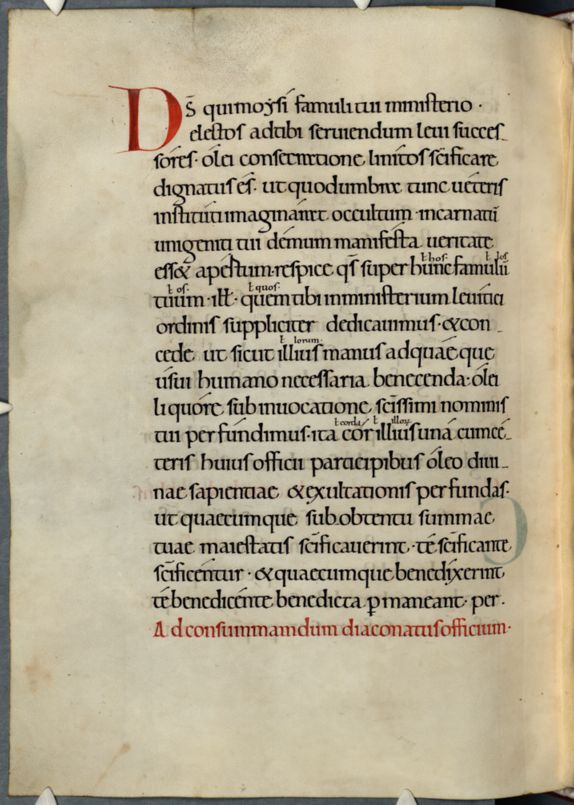 Ds̄ qui moẏsi famuli tui ministerio ·
electos ad tibi seruiendum leui succes-
sores · olei consecratione linitos sc̄ificare
dignatus es̄ · ut quod umbrae tunc ueteris
instituti imaginaret occultum · incarnati
unigeniti tui demum manifesta ueritate
ess& apertum · respice qs̄ super hunc famulū
ł hos · ł los
tuum · ill̄ · quem tibi in ministerium leuitici
ł os · ł quos ·
ordinis suppliciter dedicauimus · & con-
cede ut sicut illius manus ad quaeque
ł lorum
usui humano necessaria benecenda · olei
liquore sub inuocatione sc̄issimi nominis
tui perfundimus · ita cor illius una cum cę-
ł corda ł illoꝝ
teris huius officii participibus oleo diui-
nae sapientiae & exultationis perfundas ·
ut quaecumque sub obtentu summae
tuae maiestatis sc̄ificauerint · te sc̄ificante
sc̄ificentur · & quaecumque benedixerint
te benedicente benedicta ꝑmaneant · per ·
Ad consummandum diaconatus officium ·